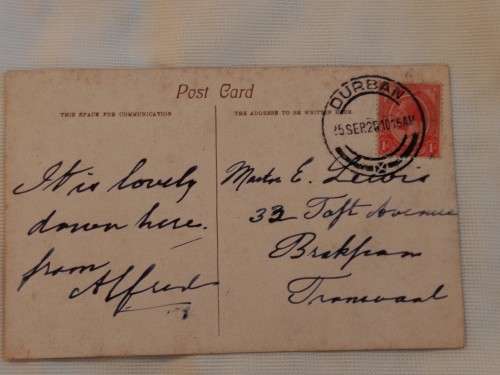 Post Card
THIS SPACE FOR COMMUNICATION
THE ADDRESS TO BE WRITTEN HERE
DURBAN
SEP 26 10 15 AM
It is lovely
down here.
from
Alfred
Master E. Lewis
33 Taft Avenue
Brakpan
Transvaal